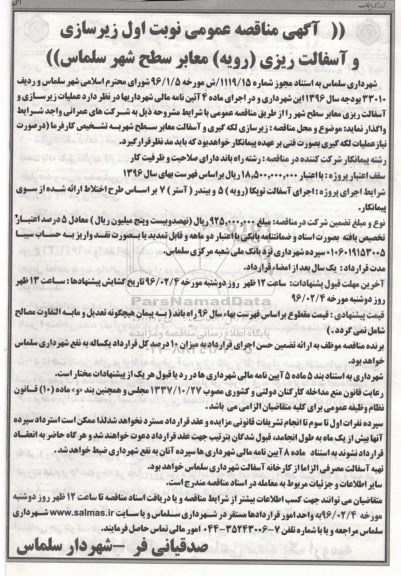 (( آگهی مناقصه عمومی نوبت اول زیرسازی
و آسفالت ریزی (رویه) معابر سطح شهر سلماس))
شهرداری سلماس به استناد مجوز شماره ۱۱۱۹/۱۵/ش مورخه ۹۶/۱/۵ شورای محترم اسلامی شهر سلماس و ردیف
۳۳۰۱۰ بودجه سال ۱۳۹۶ این شهرداری و در اجرای ماده ۴ آئین نامه مالی شهرداریها در نظر دارد عملیات زیرسازی و
آسفالت ریزی معابر سطح شهر را از طریق مناقصه عمومی با شرایط مشروحه ذیل به شرکت های عمرانی واجد شرایط
واگذار نماید: موضوع و محل مناقصه: زیرسازی لکه گیری و آسفالت معابر سطح شهر به تشخیص کارفرما (درصورت
نیاز عملیات لکه گیری بصورت فنی بر عهده پیمانکار خواهد بود که باید مد نظر قرار گیرد.
رشته پیمانکار شرکت کننده در مناقصه: رشته راه باند دارای صلاحیت و ظرفیت کار
سقف اعتبار پروژه: با اعتبار ۱۸,۵۰۰,۰۰۰,۰۰۰ ریال براساس فهرست بهای سال ۱۳۹۶
شرایط اجرای پروژه: اجرای آسفالت توپکا (رویه) ۵ و بیندر (آستر) ۷ بر اساس طرح اختلاط ارائه شده از سوی
پیمانکار.
نوع و مبلغ تضمین شرکت در مناقصه: مبلغ ۹۲۵,۰۰۰,۰۰۰ ریال (نهصدوبیست وپنج میلیون ریال) معادل ۵ درصد اعتبار
تخصیص یافته بصورت اسناد و ضمانتنامه بانکی با اعتبار دو ماهه و قابل تمدید یا بصورت نقد واریز به حساب سیبا
۰۱۰۶۰۱۹۱۵۳۰۰۵ سپرده شهرداری نزد بانک ملی شعبه مرکزی سلماس.
مدت قرارداد: یک سال بعد از امضاء قرارداد.
آخرین مهلت قبول پشنهادات: ساعت ۱۲ ظهر روز دوشنبه مورخه ۹۶/۰۲/۴ تاریخ گشایش پیشنهادها: ساعت ۱۳ ظهر
روز دوشنبه مورخه ۹۶/۰۲/۴
قیمت پیشنهادی: قیمت مقطوع براساس فهرست بهاء سال ۹۶ راه باند (به پیمان هیچگونه تعدیل و مابه التفاوت مصالح
شامل نمی گردد.)
برنده مناقصه موظف به ارائه تضمین حسن اجرای قرارداد به میزان ۱۰ درصد کل قرارداد یکساله به نفع شهرداری سلماس
خواهد بود.
شهرداری به استناد بند ۵ ماده ۵ آیین نامه مالی شهرداری ها در رد یا قبول هر یک از پیشنهادات مختار است.
رعایت قانون منع مداخله کارکنان دولتی و کشوری مصوب ۱۳۳۷/۱۰/۲۷ مجلس و همچنین بند «و» ماده (۱۰) قانون
نظام وظیفه عمومی برای کلیه متقاضیان الزامی می باشد.
سپرده نفرات اول تا سوم تا انجام تشریفات قانونی مزایده و عقد قرارداد مسترد نخواهد شد لذا ممکن است استرداد سپرده
آنها بیش از یک ماه به طول انجامد، قبول شدگان بترتیب جهت عقد قرارداد دعوت خواهند شد و هر گاه حاضر به انعقاد
قرارداد نشوند به استناد ماده ۸ آیین نامه مالی شهرداری ها سپرده آنان به نفع شهرداری ضبط خواهد شد.
تهیه آسفالت مصرفی الزاما از کارخانه آسفالت شهرداری سلماس خواهد بود.
سایر اطلاعات و جزئیات مربوط به معامله در اسناد مناقصه مندرج است.
متقاضیان می توانند جهت کسب اطلاعات بیشتر از شرایط مناقصه و یا دریافت اسناد مناقصه تا ساعت ۱۲ ظهر روز دوشنبه
مورخه ۹۶/۰۲/۴ به واحد امور قراردادها مستقر در شهرداری سلماس و یا سایت www.salmas.ir شهرداری
سلماس مراجعه و یا با شماره تلفن ۷-۳۵۲۴۳۰۰۶-۰۴۴ امور مالی تماس حاصل فرمایند.
صدقیانی فر -شهردار سلماس
ParsNamadData